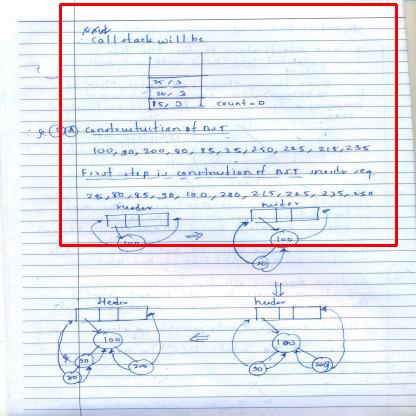 call stack will be
25, 3
20, 3
15, 3 count=0
Construcuction of BST
100, 90, 200, 80, 85, 25, 250, 225, 215, 235
First step is construction of BST inorder seq.
25, 80, 85, 90, 100, 200, 215, 225, 235, 250
header
header
100
100
90
Header
header
100
90
200
80
100
90
200